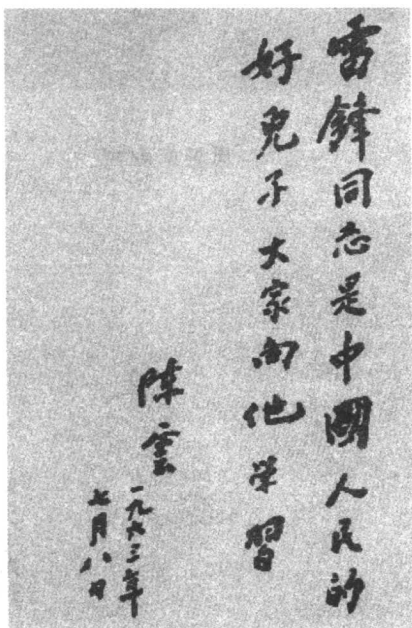 雷鋒同志是中國人民的
好兒子大家向他学習
陳雲
一九六三年
七月八日